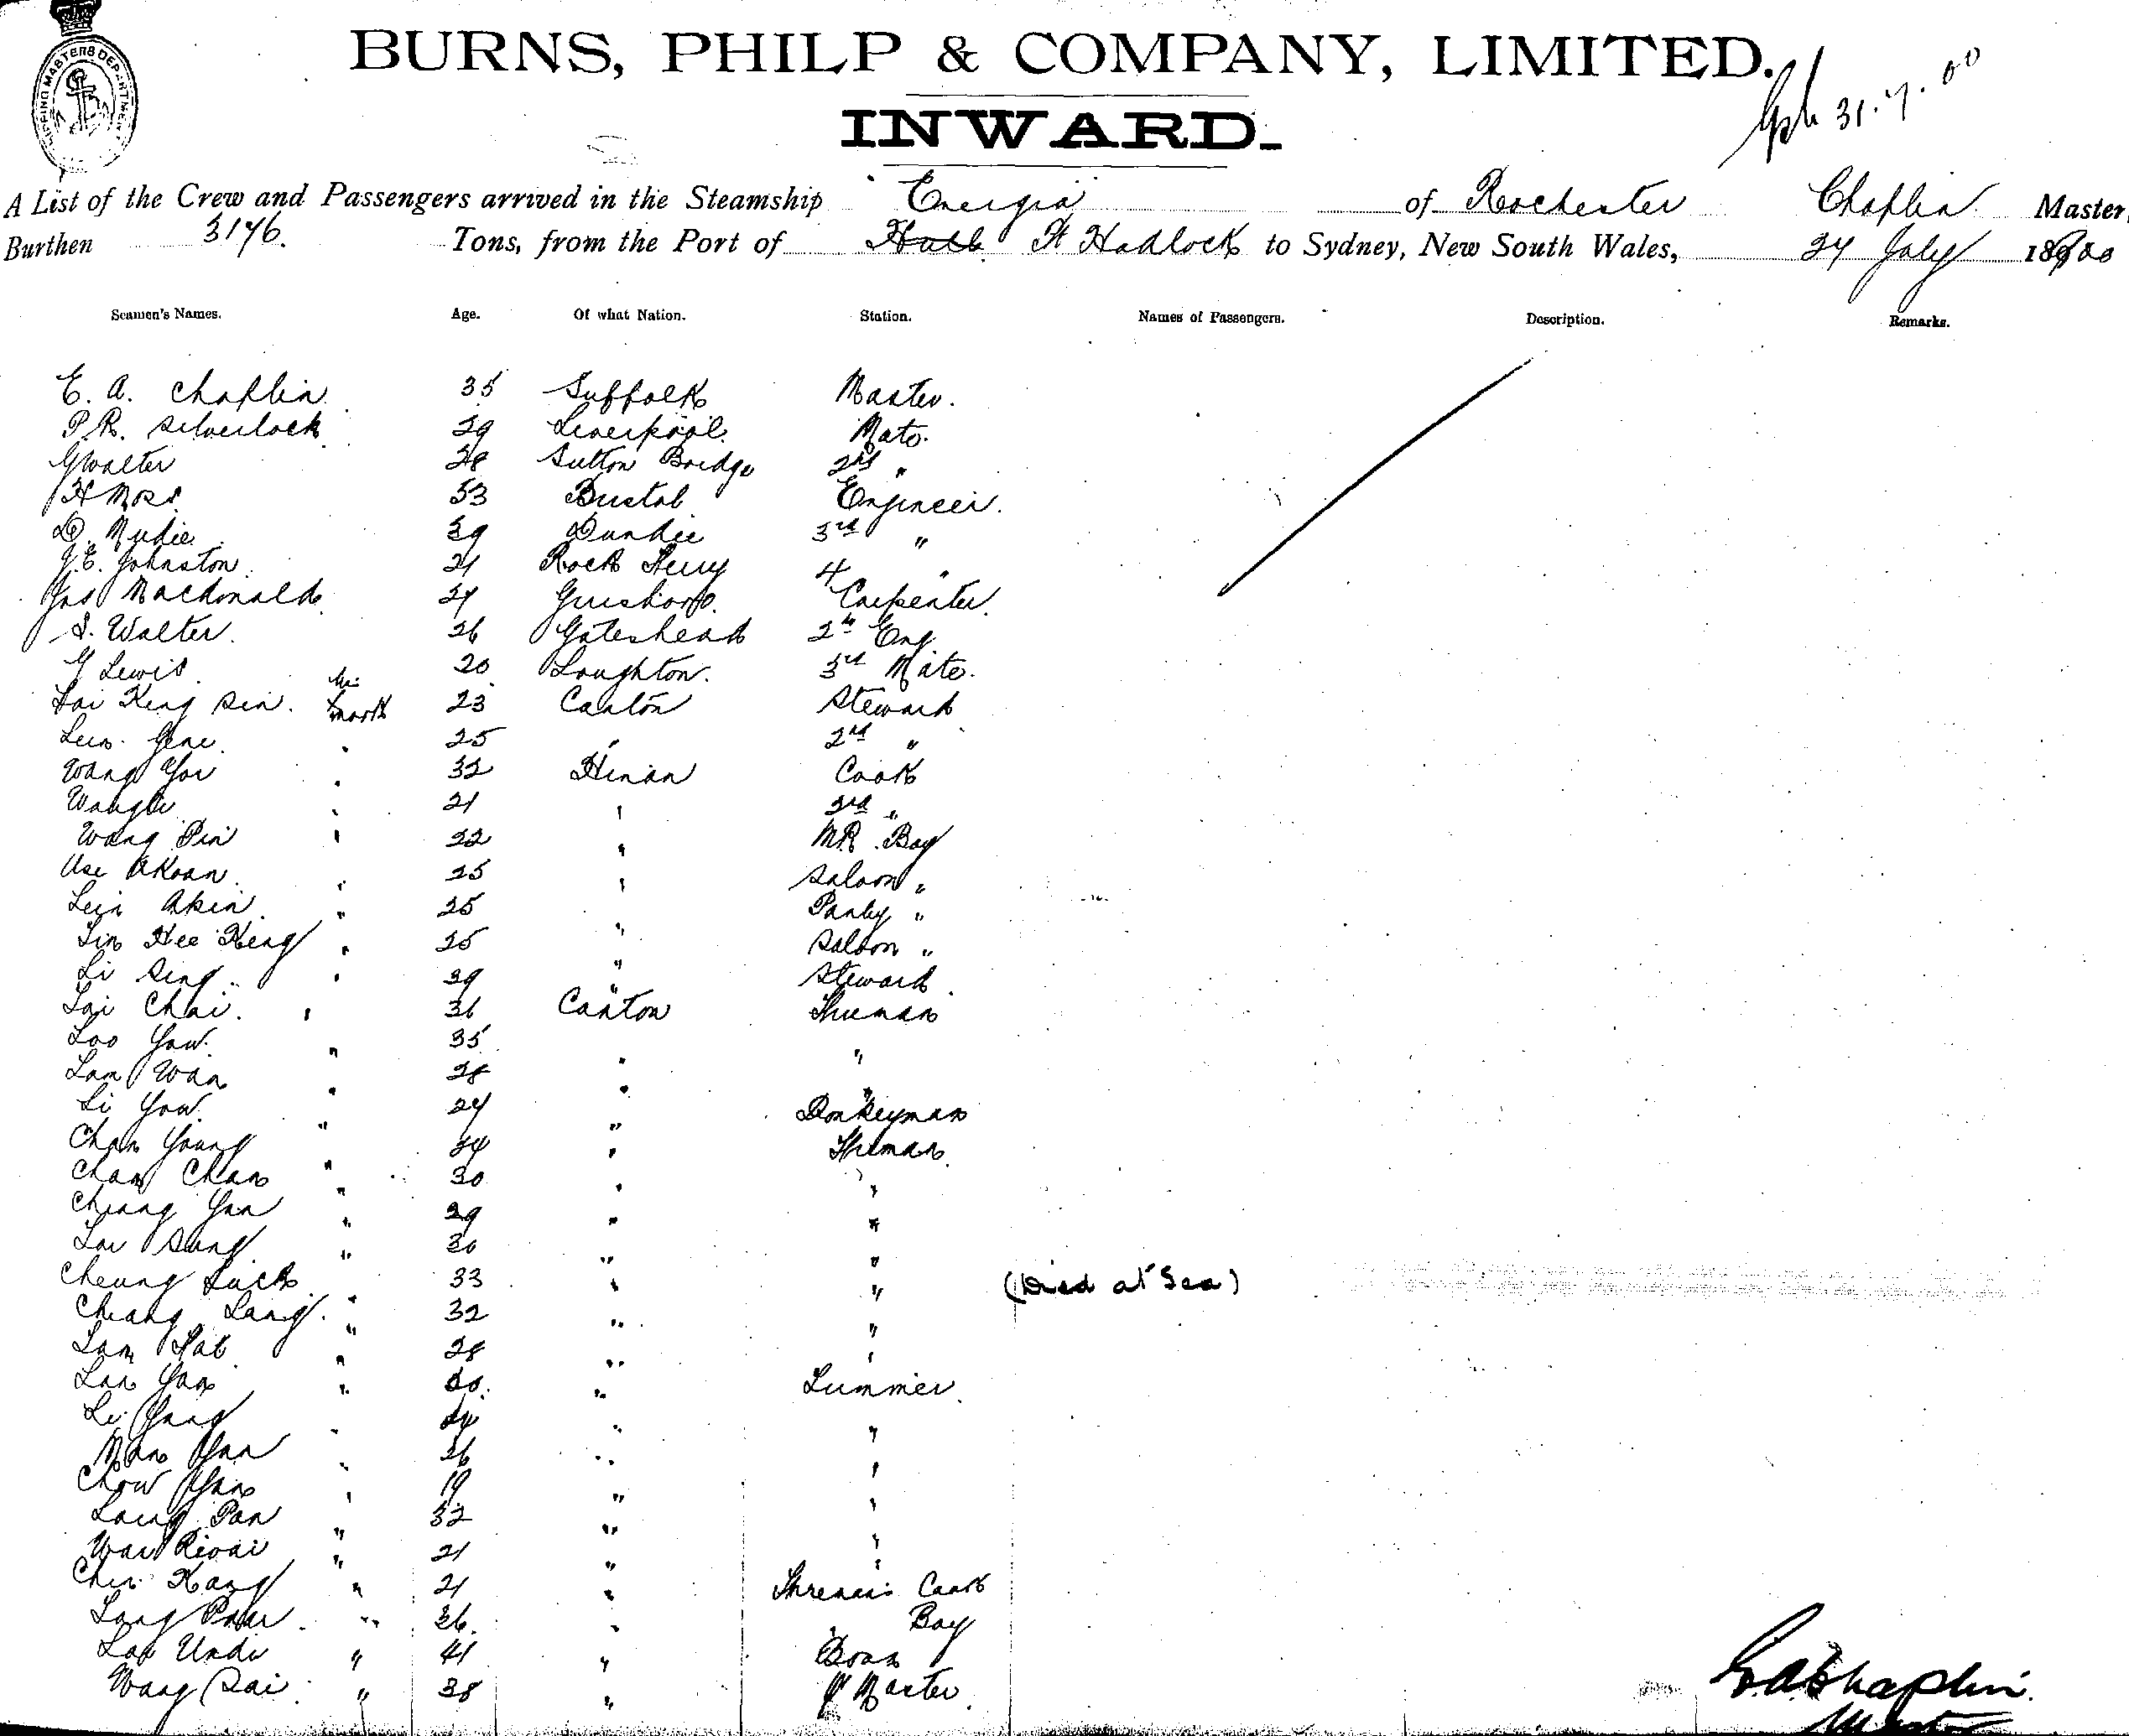 SHIPPING MASTERS DEPARTMENT
BURNS, PHILP & COMPANY, LIMITED.
31.7.00
INWARD.
A List of the Crew and Passengers arrived in the Steamship Energia of Rochester Chaplin Master,
Burthen 3176. Tons, from the Port of Pt Hadlock to Sydney, New South Wales, 27 July 1900
Seamen's Names. Age. Of what Nation. Station. Names of Passengers. Description. Remarks.
E. A. Chaplin 35 Suffolk Master.
P.R. Silverlock 29 Liverpool. Mate.
G Walter 28 Sutton Bridge 2nd "
H Moss. 53 Bristol Engineer.
D. Mudie 39 Dundee 3rd "
J.E. Johnston. 21 Rock Ferry 4 "
Jas Macdonald 27 Guisboro. Carpenter.
S. Walter. 26 Gateshead 2nd Eng.
G Lewis 20 Loughton. 3rd Mate.
Lai King Sin. his x mark 23 Canton Steward
Lum 25 " 2nd "
Wang Yow " 32 Hinan Cook
21 " 2nd "
Wang Pin " 22 " MR. Boy
Use Akoan. " 25 " Saloon "
Akin. " 25 Pantry "
Lin Hee Keng " 25 " Saloon "
Li Sing " 39 " Steward
Lai Chai. " 36 Canton Fireman
Loo Yow. " 35 " "
Lam Wan " 28 " "
Li Yow. " 27 " Donkeyman
Chan Young " 34 " Fireman
Chan Chan " 30 " "
Cheang Yan " 29 " "
Lai Sung " 30 " "
Cheung Luck " 33 " " (Died at Sea)
Cheang Lang. " 32 " "
Lam Sat " 28 " "
Lan Yan " 30. " Trimmer.
Li Yang " 24 " "
Man Yan " 26 " "
Chow Yan " 19 " "
Laing Pan " 32 " "
Wai " 21 " "
Chin Kang " 21 " Firemens Cook
Lang " 26. " Boy
Lao Undi " 41 " Bosn
Wang Sai. " 38 " Q Master
E. A. Chaplin.
Master